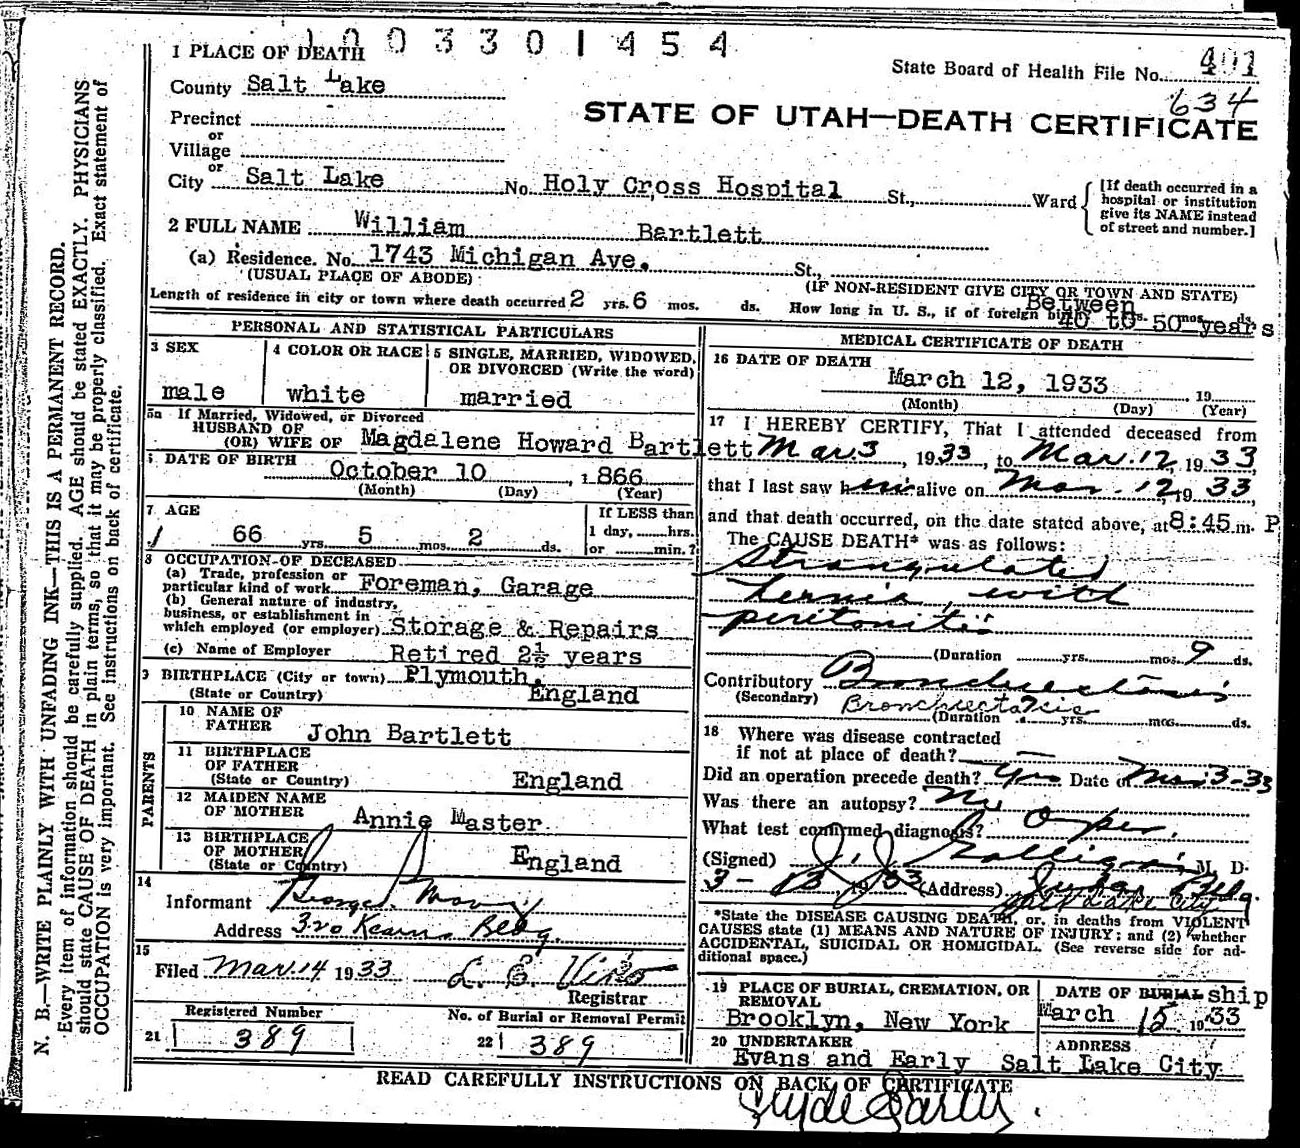 1003301454
State Board of Health File No. 401
634
STATE OF UTAH—DEATH CERTIFICATE
1 PLACE OF DEATH
County Salt Lake
Precinct
or
Village
or
City Salt Lake No. Holy Cross Hospital St., Ward
[If death occurred in a hospital or institution give its NAME instead of street and number.]
2 FULL NAME William Bartlett
(a) Residence. No. 1743 Michigan Ave. St.,
(USUAL PLACE OF ABODE) (IF NON-RESIDENT GIVE CITY OR TOWN AND STATE)
Length of residence in city or town where death occurred 2 yrs. 6 mos. ds. How long in U. S., if of foreign birth? Between 40 to 50 years
PERSONAL AND STATISTICAL PARTICULARS
3 SEX
male
4 COLOR OR RACE
white
5 SINGLE, MARRIED, WIDOWED, OR DIVORCED (Write the word)
married
5a If Married, Widowed, or Divorced
HUSBAND OF
(OR) WIFE OF Magdalene Howard Bartlett
6 DATE OF BIRTH October 10, 1866
(Month) (Day) (Year)
7 AGE
66 yrs. 5 mos. 2 ds.
If LESS than
1 day, hrs.
or min.?
8 OCCUPATION OF DECEASED
(a) Trade, profession or
particular kind of work Foreman, Garage
(b) General nature of industry,
business, or establishment in
which employed (or employer) Storage & Repairs
(c) Name of Employer Retired 2½ years
9 BIRTHPLACE (City or town) Plymouth,
(State or Country) England
PARENTS
10 NAME OF
FATHER John Bartlett
11 BIRTHPLACE
OF FATHER
(State or Country) England
12 MAIDEN NAME
OF MOTHER Annie Master
13 BIRTHPLACE
OF MOTHER
(State or Country) England
14
Informant George
Address 320 Kearns Bldg.
15
Filed Mar. 14 1933
Registrar
Registered Number
21 389
No. of Burial or Removal Permit
22 389
MEDICAL CERTIFICATE OF DEATH
16 DATE OF DEATH
March 12, 1933 19
(Month) (Day) (Year)
17 I HEREBY CERTIFY, That I attended deceased from
Mar. 3, 1933, to Mar. 12, 1933
that I last saw him alive on Mar. 12, 1933,
and that death occurred, on the date stated above, at 8:45 m. P
The CAUSE DEATH* was as follows:
Strangulated
hernia, with
peritonitis
(Duration yrs. mos. 9 ds.
Contributory Bronchiectasis
(Secondary) Bronchiectasis
(Duration yrs. mos. ds.
18 Where was disease contracted
if not at place of death? —
Did an operation precede death? Yes Date of Mar 3-33
Was there an autopsy? No
What test confirmed diagnosis? Oper.
(Signed) J. J. Galligan, M. D.
3-13 1933 (Address) Judge Bldg.
Salt Lake City
*State the DISEASE CAUSING DEATH, or, in deaths from VIOLENT
CAUSES state (1) MEANS AND NATURE OF INJURY; and (2) whether
ACCIDENTAL, SUICIDAL OR HOMICIDAL. (See reverse side for ad-
ditional space.)
19 PLACE OF BURIAL, CREMATION, OR
REMOVAL
Brooklyn, New York
DATE OF BURIAL ship
March 15 1933
20 UNDERTAKER ADDRESS
Evans and Early Salt Lake City
READ CAREFULLY INSTRUCTIONS ON BACK OF CERTIFICATE
Clyde Early
N. B.—WRITE PLAINLY WITH UNFADING INK—THIS IS A PERMANENT RECORD.
Every item of information should be carefully supplied. AGE should be stated EXACTLY. PHYSICIANS
should state CAUSE OF DEATH in plain terms, so that it may be properly classified. Exact statement of
OCCUPATION is very important. See instructions on back of certificate.